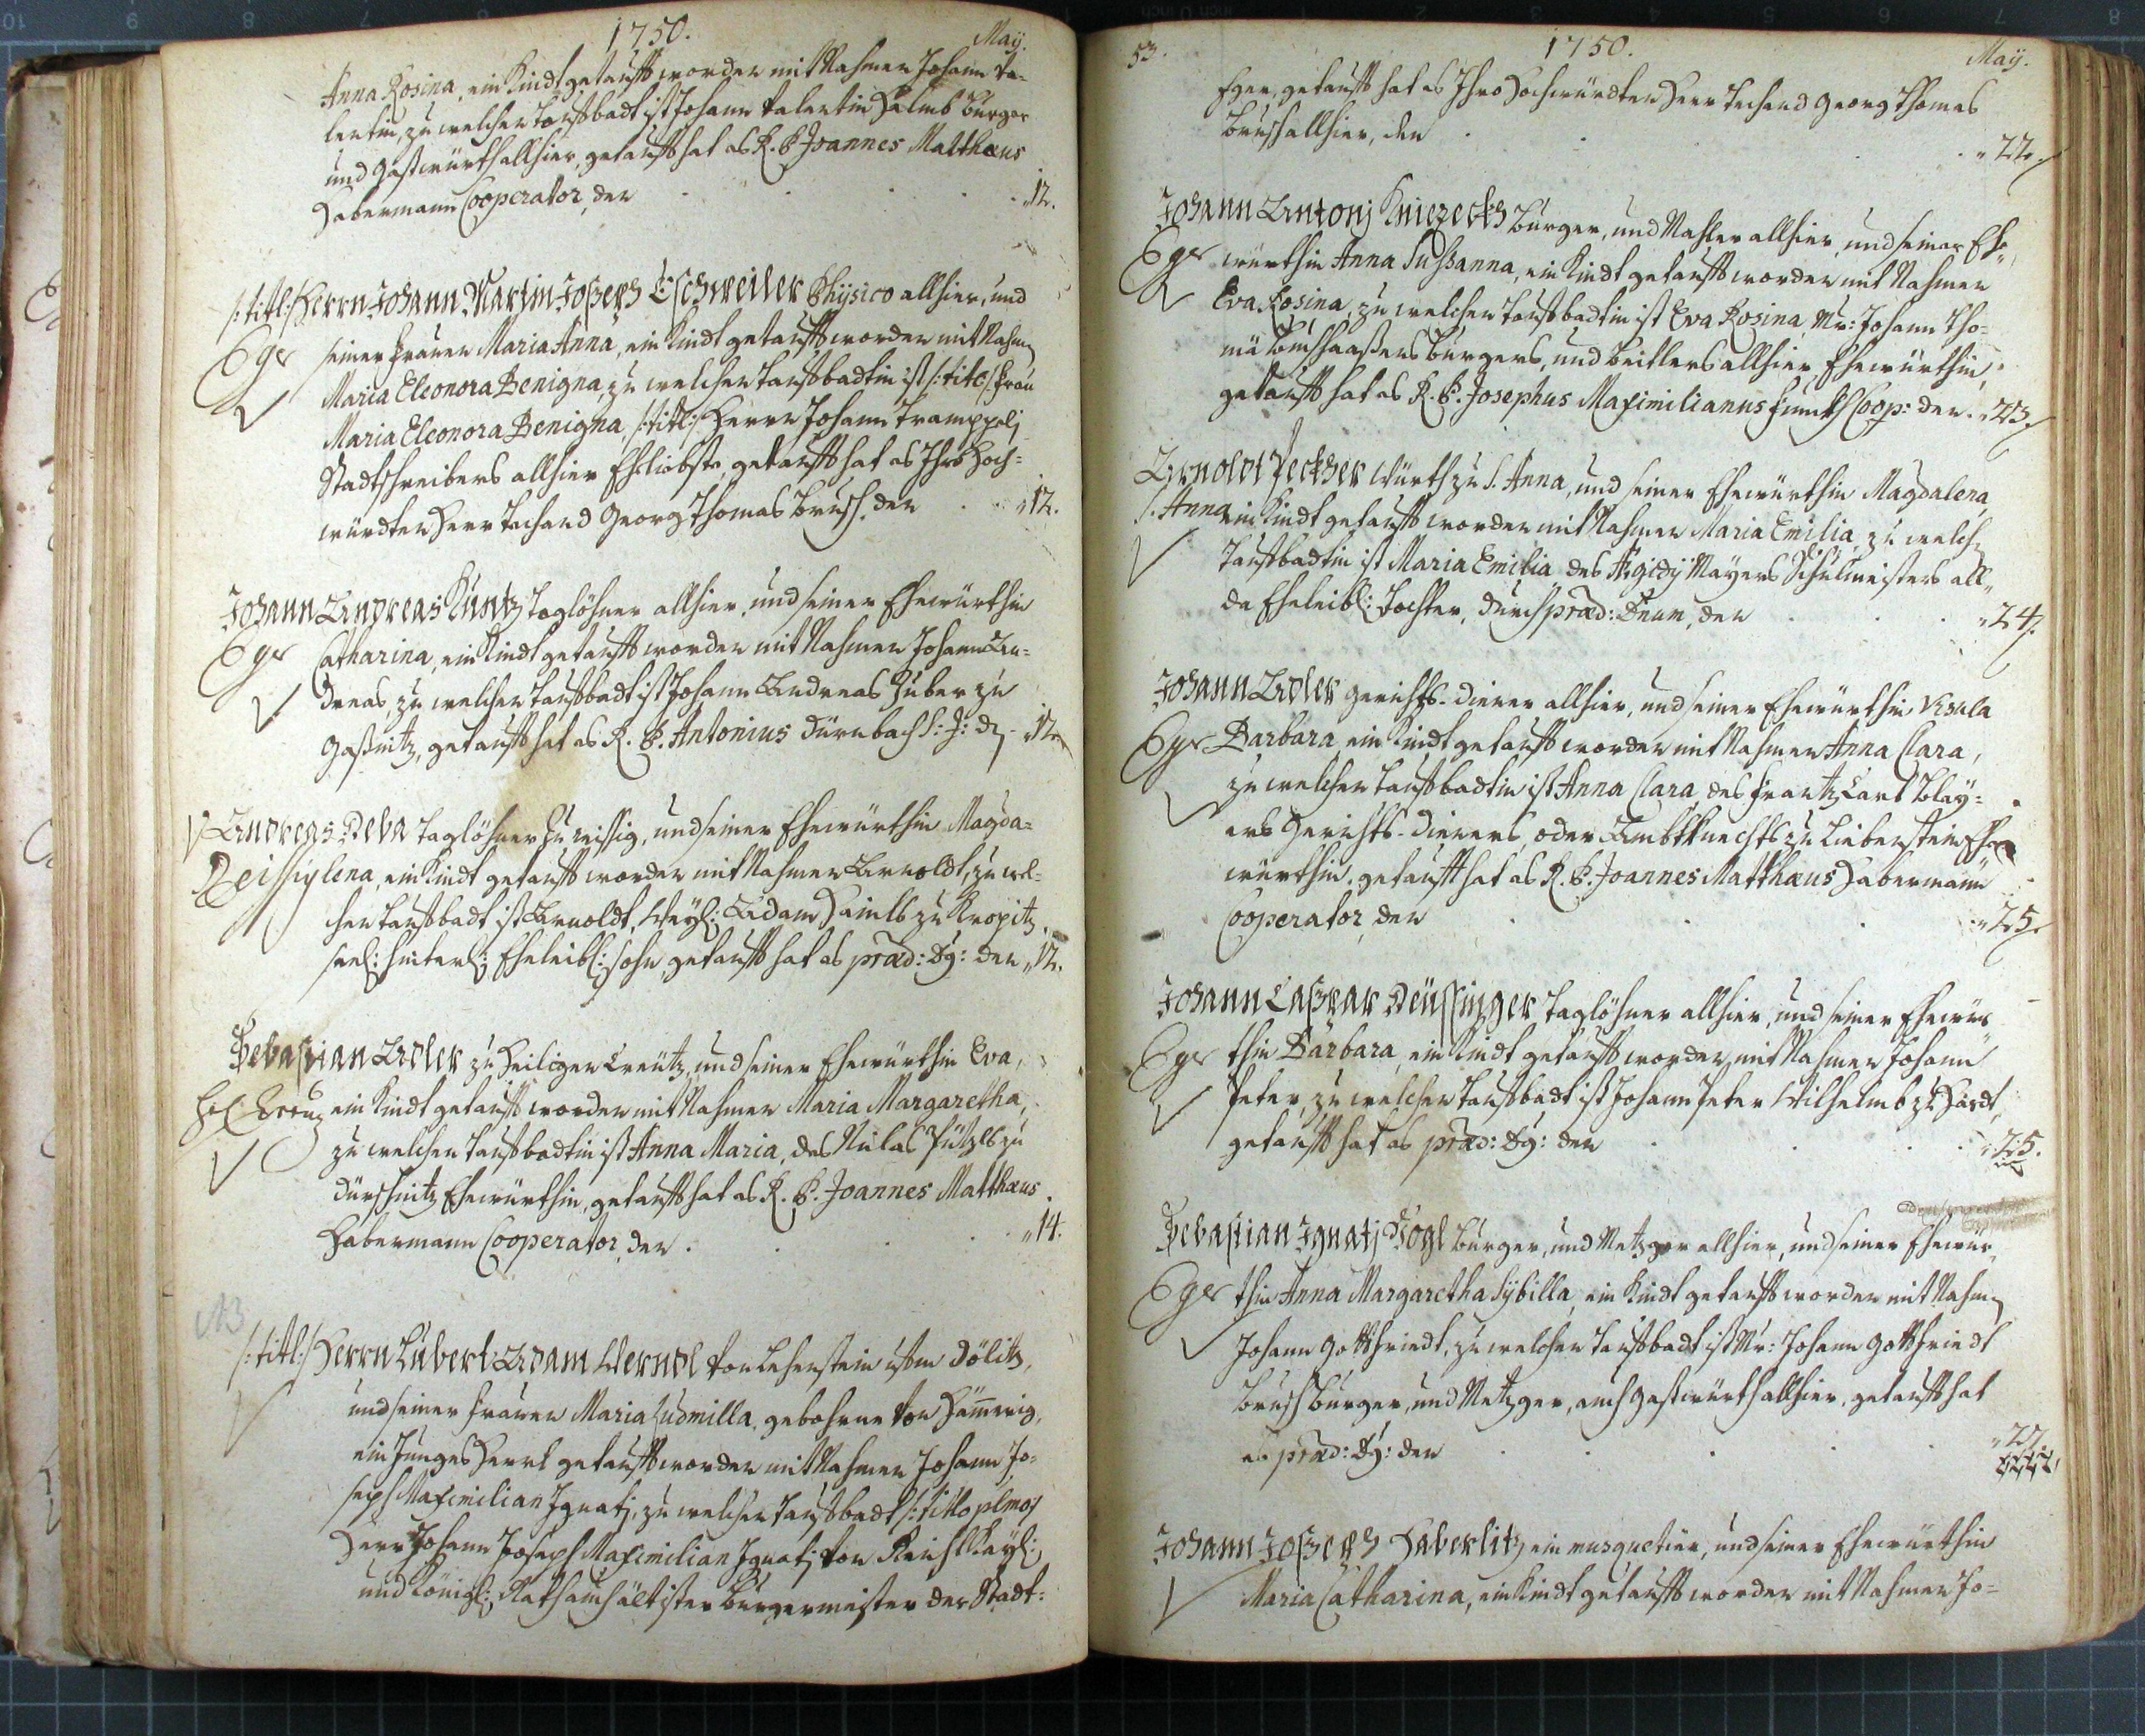 1750.
May.
Anna Rosina, ein Kindt getaufft worden mit Nahmen Johann Va-
lentin, zu welchen Tauffbadt ist Johann Valentin Helmb Burger
und Gastwürth allhier, getaufft hat es R. P. Joannes Matthæus
Habermann Cooperator, den 12.
/:titl:/ Herrn Johann Martin Joseph Eschweiler Physico allhier, und
Eger seiner Frauen Maria Anna, ein Kindt getaufft worden mit Nahmen
Maria Eleonora Benigna, zu welchen Tauffbadtin ist /:titl:/ Frau
Maria Eleonora Benigna, /:titl:/ Herrn Johann Tramppeli
Stadtschreibers allhier Eheliebste, getaufft hat es Ihro Hoch-
würdten Herr Dechand Georg Thomas Brusch, den 12.
Johann Andreas Kuntz Taglöhner allhier, und seiner Ehewürthin
Eger Catharina, ein Kindt getaufft worden mit Nahmen Johann An-
dreas, zu welchen Tauffbadt ist Johann Andreas Huber zu
Gaßnitz, getaufft hat es R. P. Antonius Dürnbach S: J: den 12.
Andreas Deba Taglöhner zu reissig, und seiner Ehewürthin Magda-
Reissig lena, ein Kindt getaufft worden mit Nahmen Arnoldt, zu wel-
chen Tauffbadt ist Arnoldt, Weyl: Adam Haimls zu Kropitz
seel: hinterl: Eheleibl: sohn, getaufft hat es præd: Dg: den 12.
Sebastian Adler zu Heiligen Creutz, und seiner Ehewürthin Eva,
Heil Kreuz ein Kindt getaufft worden mit Nahmen Maria Margaretha,
zu welchen Tauffbadtin ist Anna Maria, des Niclas Pützls zu
Dürschnitz Ehewürthin, getaufft hat es R. P. Joannes Matthæus
Habermann Cooperator, den 14.
NB
/:titl:/ Herrn Hubert Adam Werndl von Lehenstein ufm Dölitz,
und seiner Frauen Maria Ludmilla, gebohrne von Hämerig,
ein Junges Herrl getaufft worden mit Nahmen Johann Jo-
seph Maximilian Ignatj, zu welchen Tauffbadt /:titlo plmo:/
Herr Johann Joseph Maximilian Ignatj von Reichl Kayl:
und Königl: Rath auch ältister Burgermeister der Stadt
53.
1750.
May.
Eger, getaufft hat es Ihro Hochwürdten Herr Dechand Georg Thomas
Brusch allhier, den 22.
Johann Antonj Kniezeckh Burger, und Mahler allhier, und seiner Ehe-
Eger würthin Anna Sußanna, ein Kindt getaufft worden mit Nahmen
Eva Rosina, zu welchen Tauffbadtin ist Eva Rosina, Mr: Johann Tho-
mä Burgers, und Beitlers allhier Ehewürthin,
getaufft hat es R. P. Josephus Maximilianus Funckh Coop: den 23.
Arnoldt Peckher Würth zu S. Anna, und seiner Ehewürthin Magdalena,
S. Anna ein Kindt getaufft worden mit Nahmen Maria Emilia, zu welchen
Tauffbadtin ist Maria Emilia des Ægidij Mayers Schulmeisters all-
da Eheleibl: Tochter, durch præd: Dnum, den 24.
Johann Adler Gerichts-Diener allhier, und seiner Ehewürthin Ursula
Eger Barbara, ein Kindt getaufft worden mit Nahmen Anna Clara,
zu welchen Tauffbadtin ist Anna Clara, des Frantz Carl Blay-
ers Gerichts-Dieners, oder Ambtknechts zu Liebenstein Ehe-
würthin, getaufft hat es R. P. Joannes Matthæus Habermann
Cooperator, den 25.
Johann Caspar Deüssinger Taglöhner allhier, und seiner Ehewür-
Eger thin Barbara, ein Kindt getaufft worden mit Nahmen Johann
Peter, zu welchen Tauffbadt ist Johann Peter Wilhelmb zu Haidt,
getaufft hat es præd: Dg: den 25.
Sebastian Ignatj Vogl Burger, und Metzger allhier, und seiner Ehewür-
Eger thin Anna Margaretha Sybilla, ein Kindt getaufft worden mit Nahmen
Johann Gottfriedt, zu welchen Tauffbadt ist Mr: Johann Gottfriedt
Brusch Burger, und Metzger, auch Gastwürth allhier, getaufft hat
es præd: Dg: den 27.
Johann Joseph Haberlitz ein musquetier, und seiner Ehewürthin
Maria Catharina, ein Kindt getaufft worden mit Nahmen Jo-